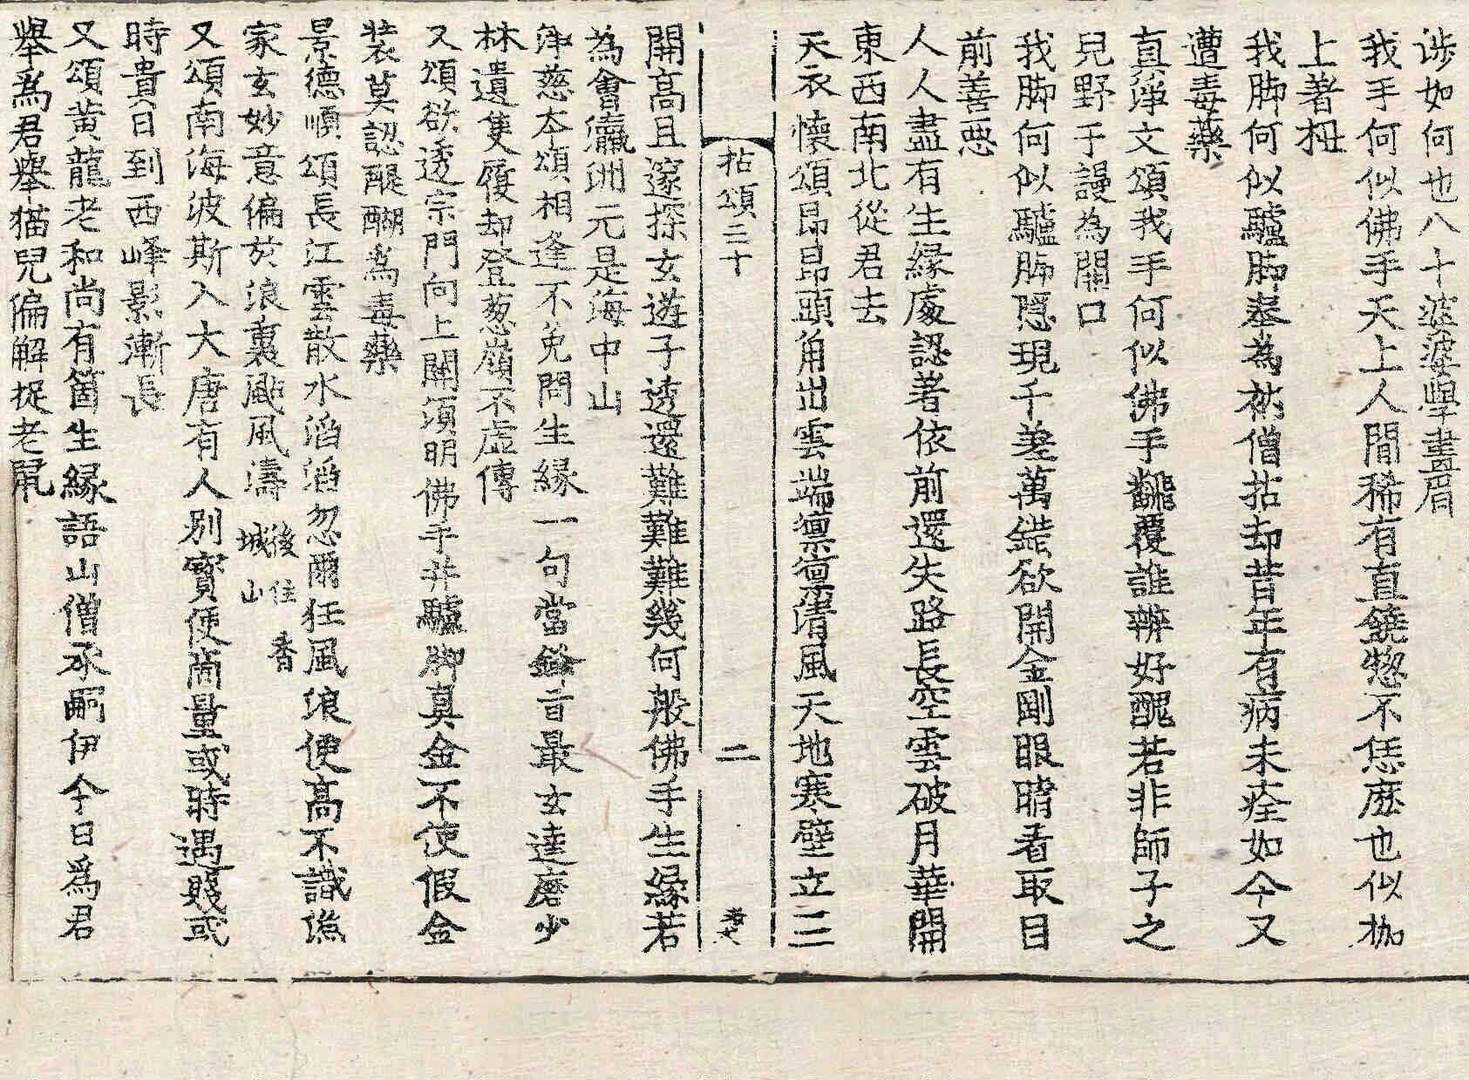 涉如何也八十婆婆學畫眉
我手何似佛手天上人間稀有直饒惣不恁麽也似枷
上著杻
我脚何似驢脚奉為衲僧拈却昔年有病未痊如今又
遭毒藥
真淨文頌我手何似佛手飜覆誰辨好醜若非師子之
兒野干謾為開口
我脚何似驢脚隠現千差萬錯欲開金剛眼睛看取目
前善惡
人人盡有生緣處認著依前還失路長空雲破月華開
東西南北從君去
天衣懷頌昂昂頭角出雲端凛凛清風天地寒壁立三
拈頌二十
二
開高且邃探玄遊子透還難難難幾何般佛手生緣若
為會瀛洲元是海中山
淨慈夲頌相逢不免問生緣一句當鋒言最玄達磨少
林遺隻履却登葱嶺不虛傳
又頌欲透宗門向上關須明佛手并驢脚真金不使假金
裝莫認醍醐為毒藥
景德順頌長江雲散水滔滔忽爾狂風浪便高不識漁
家玄妙意偏於浪裏颭風濤 後住香
城山
又頌南海波斯入大唐有人別寳便啇量或時遇賤或
時貴日到西峰影漸長
又頌黄龍老和尚有箇生緣語山僧承嗣伊今日為君
舉為君舉猫兒偏解捉老鼠